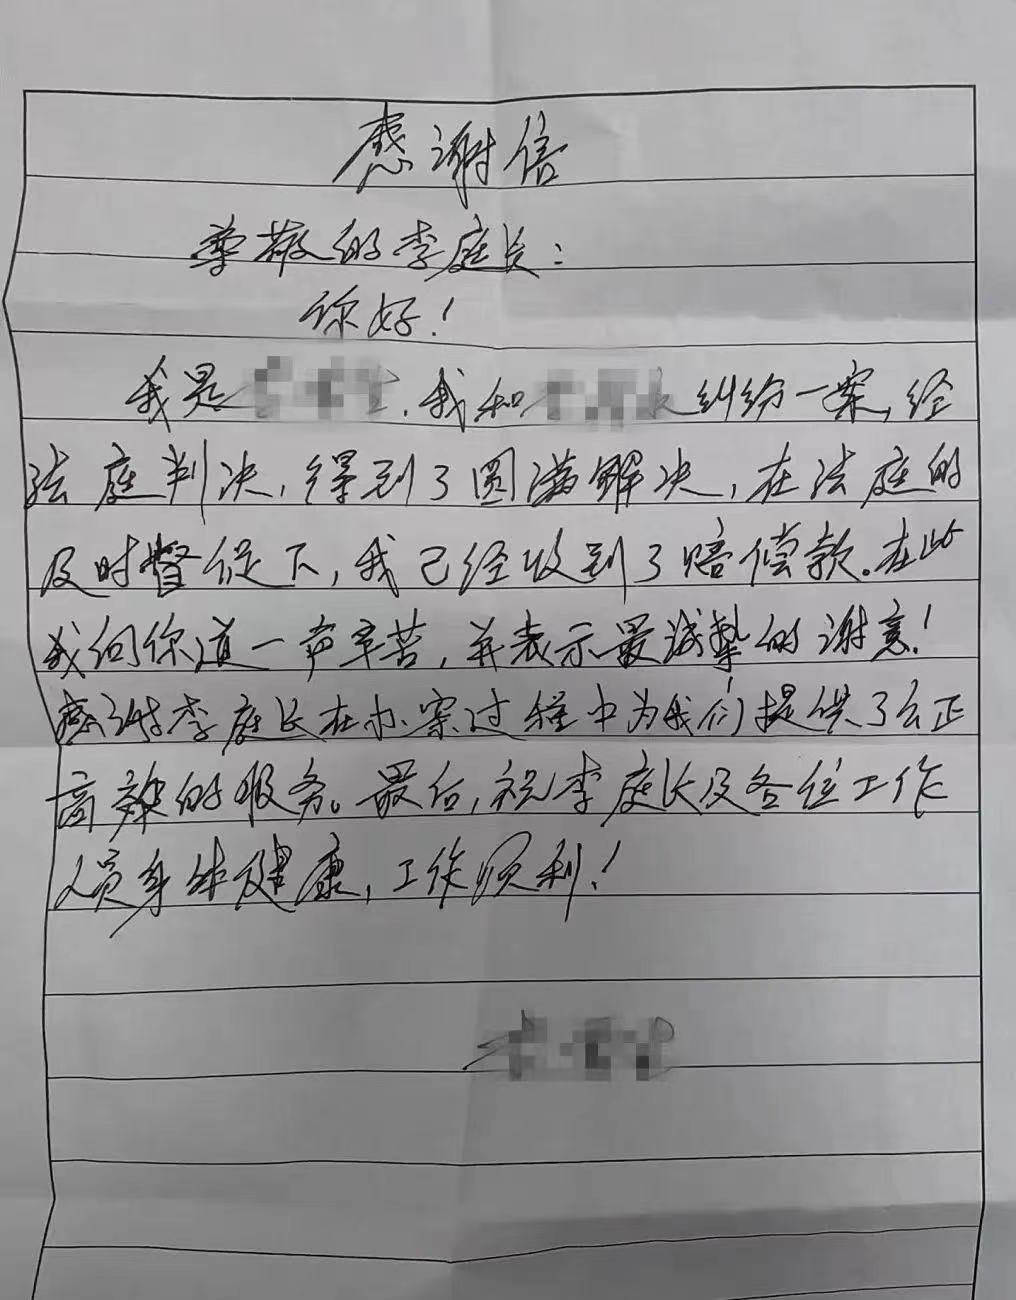 感谢信
尊敬的李庭长：
你好！
我是 . 我和 纠纷一案，经
法庭判决，得到了圆满解决，在法庭的
及时督促下，我已经收到了赔偿款。在此
我向你道一声辛苦，并表示最诚挚的谢意！
感谢李庭长在办案过程中为我们提供了公正
高效的服务。最后，祝李庭长及各位工作
人员身体健康，工作顺利！